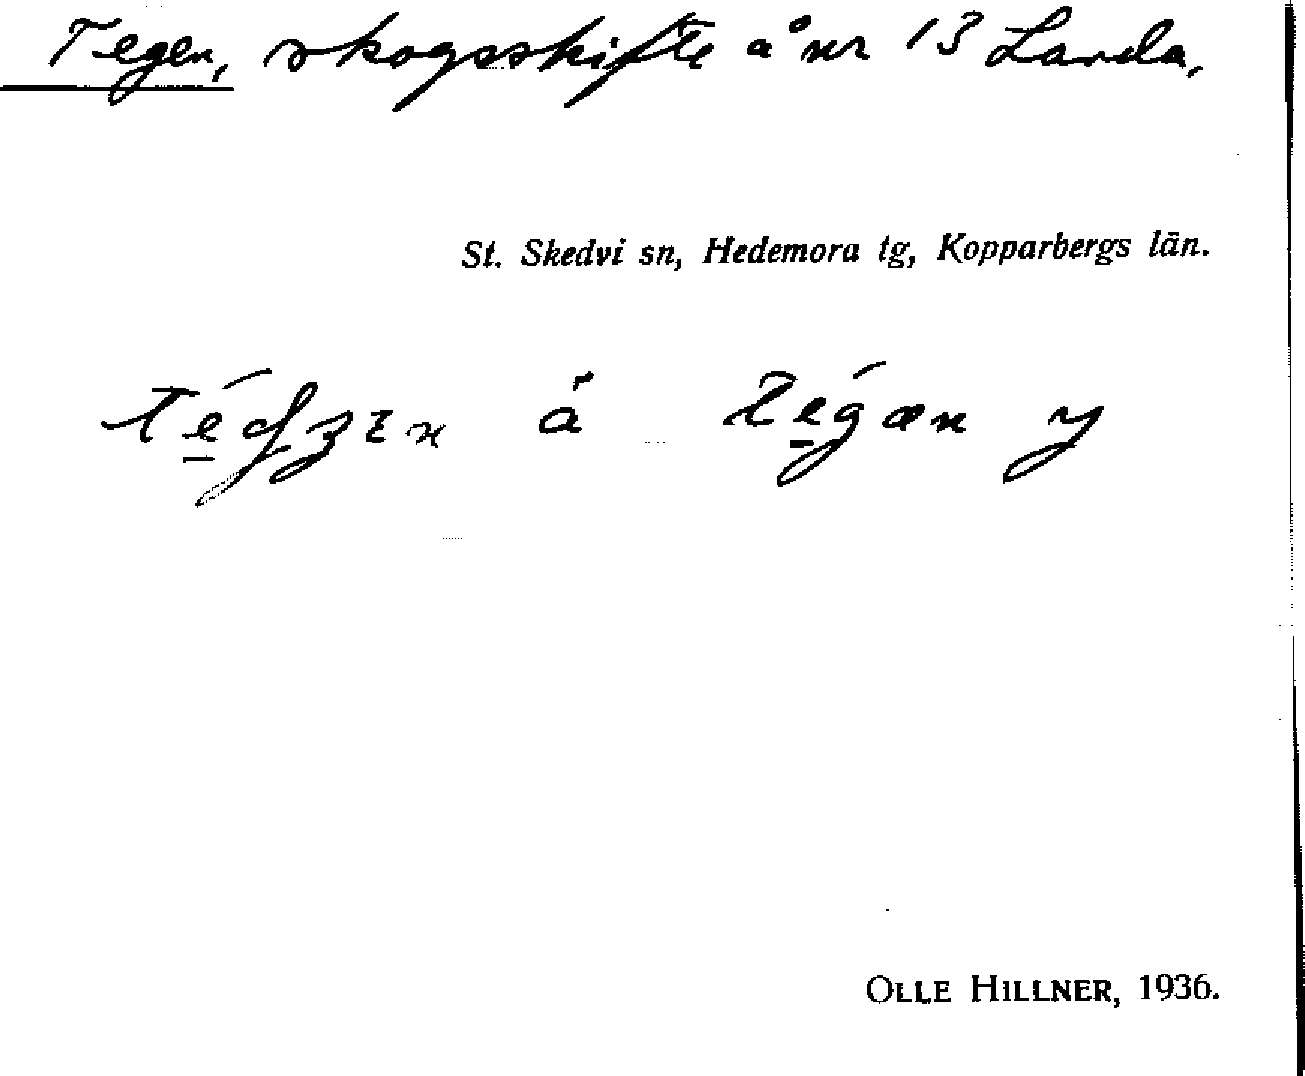 Tegen, skogsskifte å nr 13 Landa.
St. Skedvi sn, Hedemora tg, Kopparbergs län.
å
OLLE HILLNER, 1936.